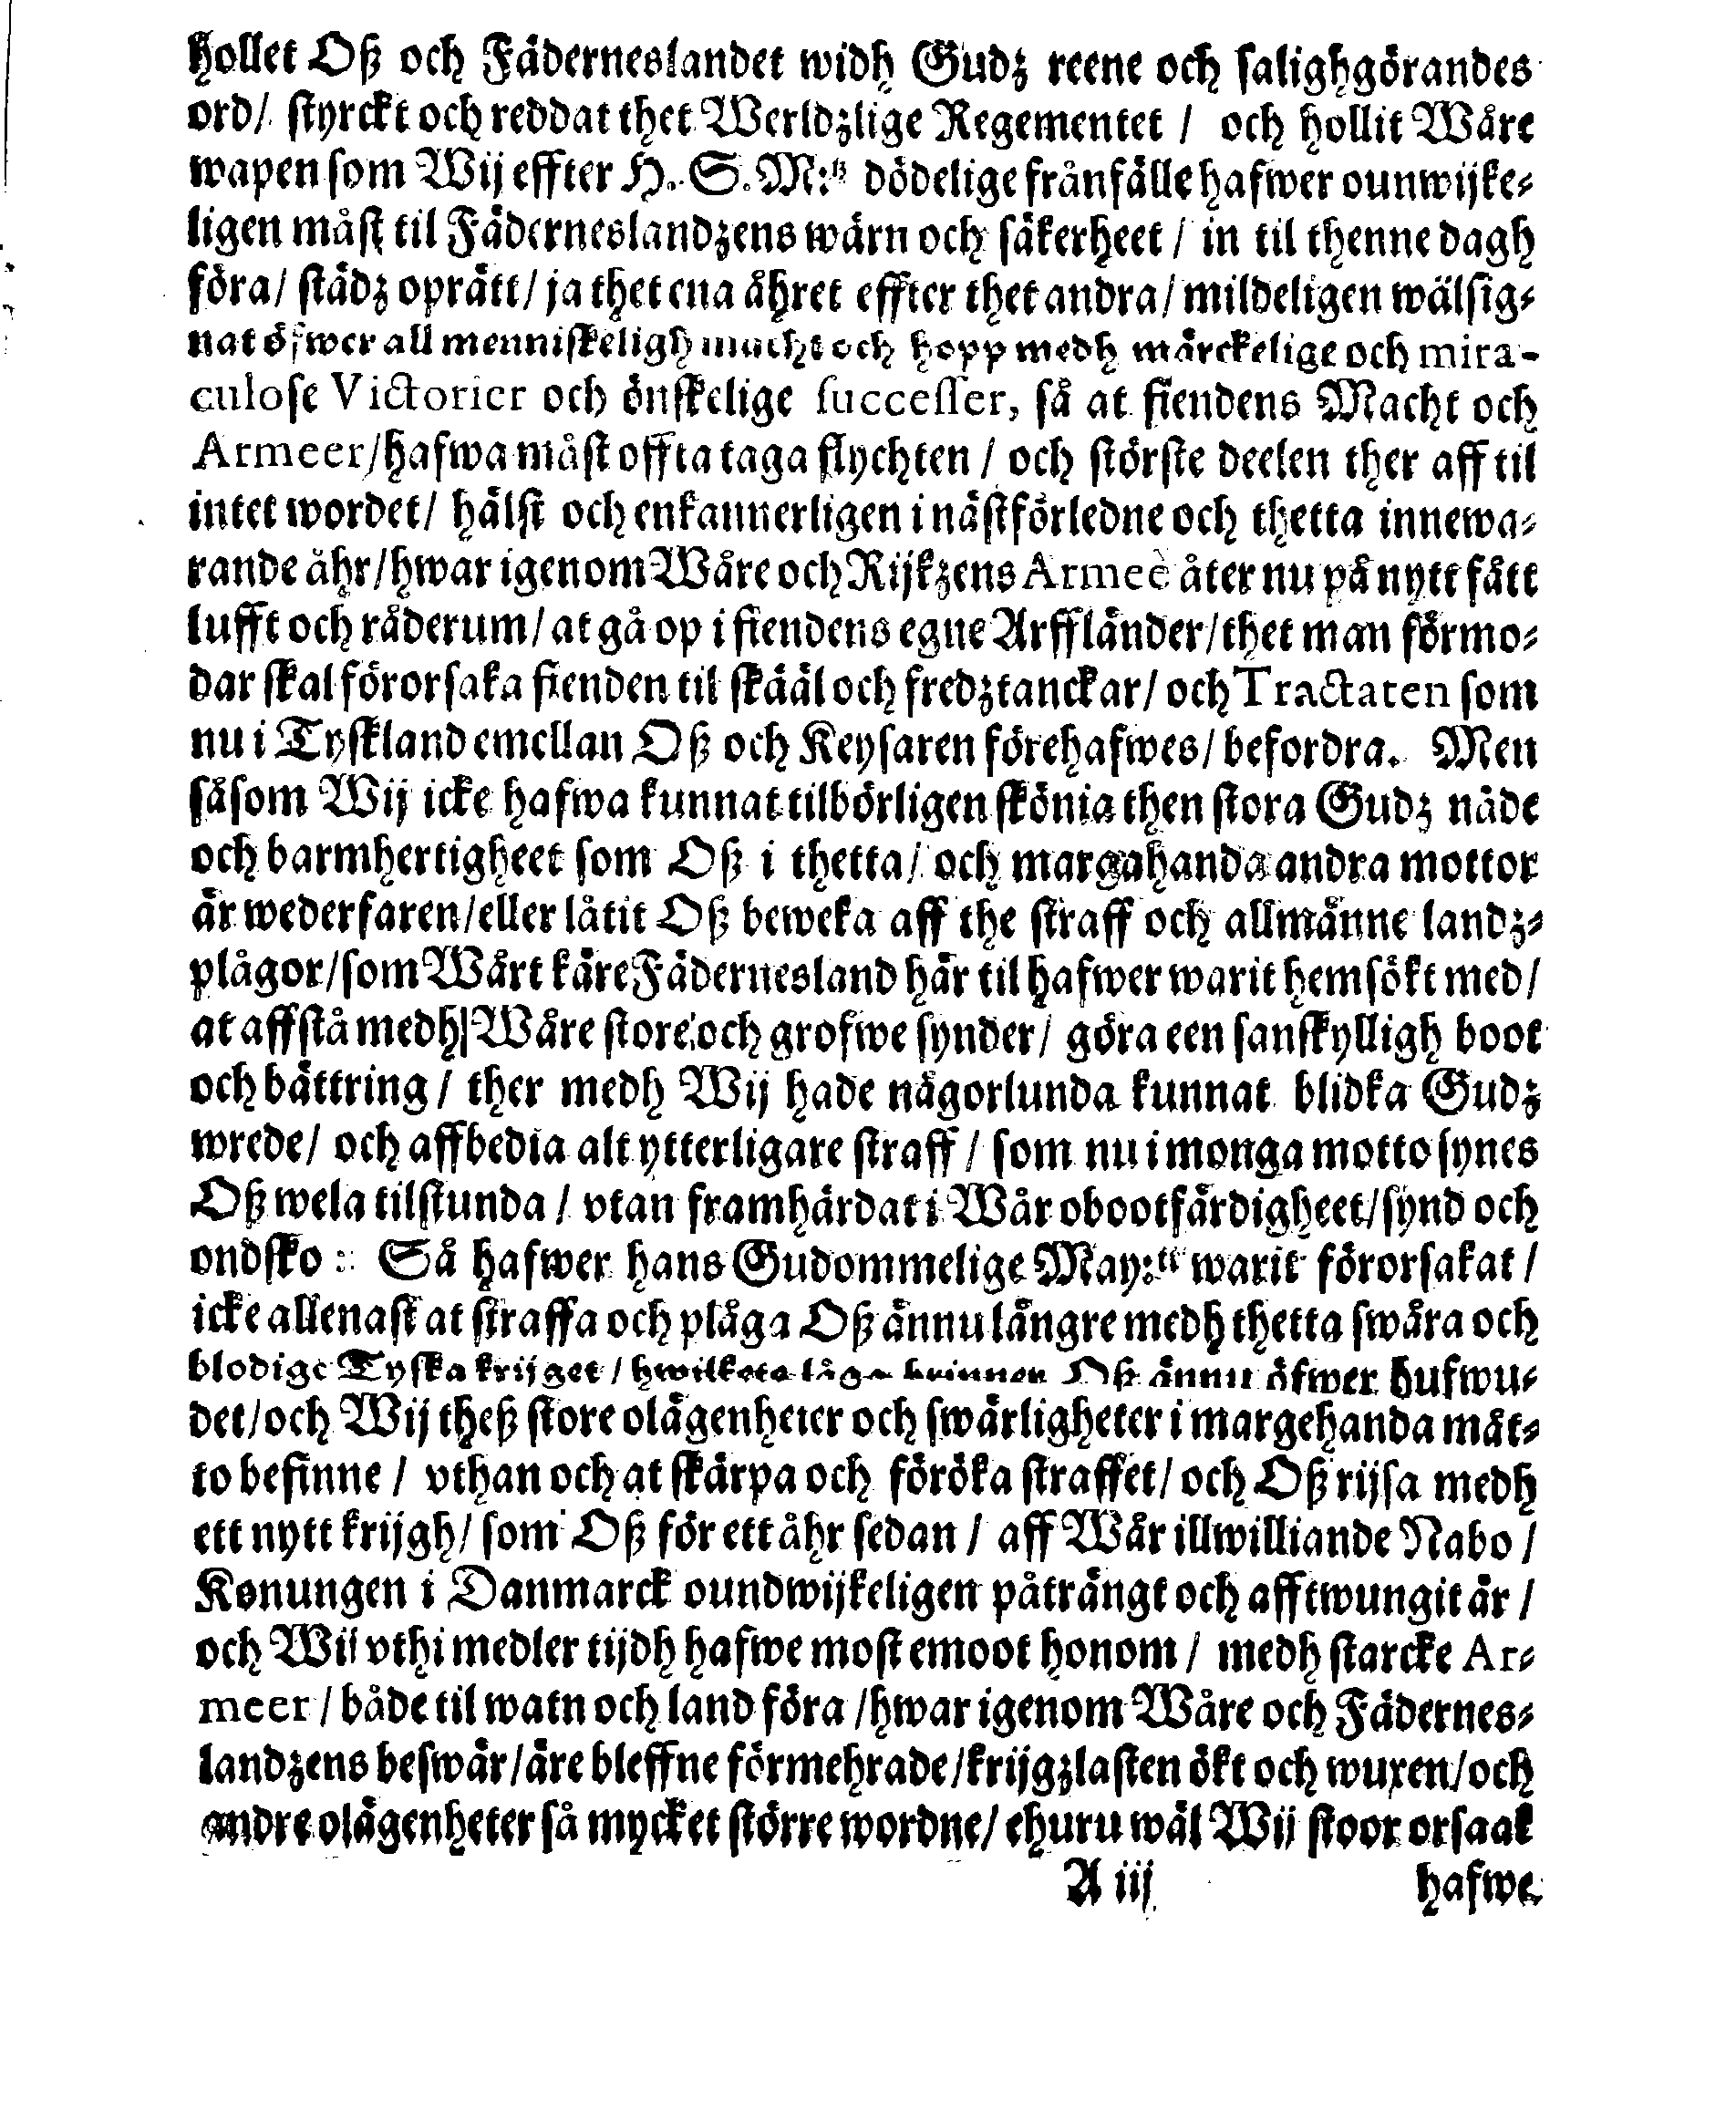 hollet Oß och Fäderneslandet widh Gudz reene och salighgörandes
ord/ styrckt och reddat thet Werldzlige Regementet / och hollit Wåre
wapen som Wij effter H. S. M:tz dödelige frånfälle hafwer ounwijke-
ligen måst til Fäderneslandzens wärn och säkerheet / in til thenne dagh
föra/ städz oprätt/ ja thet ena åhret effter thet andra/ mildeligen wälsig-
nat öfwer all menniskeligh macht och hopp medh märckelige och mira-
culose Victorier och önskelige successer, så at fiendens Macht och
Armeer/hafwa måst offta taga flychten / och störste deelen ther aff til
intet wordet/ hälst och enkannerligen i nästförledne och thetta innewa-
rande åhr/hwar igenom Wåre och Rijkzens Armeè åter nu på nytt fått
lufft och råderum/ at gå op i fiendens egne Arffländer/thet man förmo-
dar skal förorsaka fienden til skääl och fredztanckar/ och Tractaten som
nu i Tyskland emellan Oß och Keysaren förehafwes/ befordra. Men
såsom Wij icke hafwa kunnat tilbörligen skönia then stora Gudz nåde
och barmhertigheet som Oß i thetta/ och margahanda andra mottor
är wederfaren/eller låtit Oß beweka aff the straff och allmänne landz-
plågor/som Wårt käre Fädernesland här til hafwer warit hemsökt med/
at affstå medh Wåre store och grofwe synder/ göra een sanskylligh boot
och bättring/ ther medh Wij hade någorlunda kunnat blidka Gudz
wrede/ och affbedia alt ytterligare straff / som nu i monga motto synes
Oß wela tilstunda / vtan framhärdat i Wår obootfärdigheet/synd och
ondsko : Så hafwer hans Gudommelige May:tt warit förorsakat /
icke allenast at straffa och plåga Oß ännu längre medh thetta swåra och
blodige Tyska krijget / hwilkets låga brinnen Oß ännu öfwer hufwu-
det/och Wij theß store olägenheter och swårligheter i margehanda måt-
to befinne / vthan och at skärpa och föröka straffet/ och Oß rijsa medh
ett nytt krijgh/ som Oß för ett åhr sedan / aff Wår illwilliande Nabo /
Konungen i Danmarck oundwijkeligen påträngt och afftwungit är /
och Wij vthi medler tijdh hafwe most emoot honom / medh starcke Ar-
meer / både til watn och land föra /hwar igenom Wåre och Fädernes-
landzens beswär/äre bleffne förmehrade/krijgzlasten ökt och wuxen/och
andre olägenheter så mycket större wordne/ ehuru wäl Wij stoor orsaak
A iij hafwe